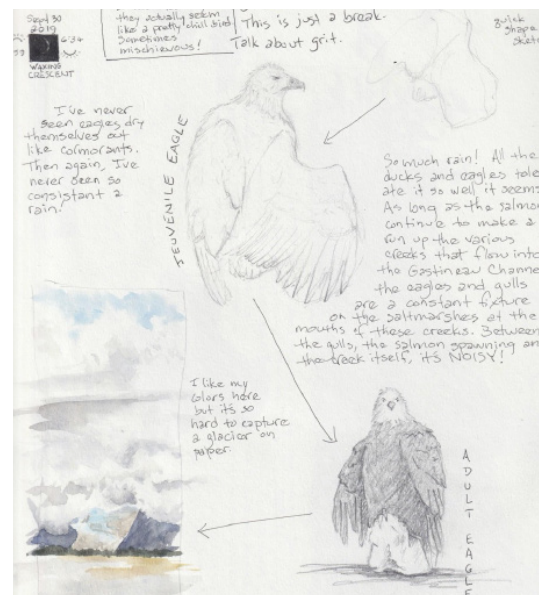 Sept 30
2019
6:34
WAXING
CRESCENT
they actually seem
like a pretty chill bird.
Sometimes
mischievous!
This is just a break.
Talk about grit.
quick
shape
sket
I've never
seen eagles dry
themselves out
like cormorants.
Then again, I've
never seen so
consistant a
rain!
JEUVENILE EAGLE
So much rain! All the
ducks and eagles toler
ate it so well it seems
As long as the salmon
continue to make a
run up the various
creeks that flow into
the Gastineau Channe
the eagles and gulls
are a constant fixture
on the saltmarshes at the
mouths of these creeks. Between
the gulls, the salmon spawning an
the creek itself, it's NOISY!
I like my
colors here
but it's so
hard to capture
a glacier on
paper.
ADULT EAGLE